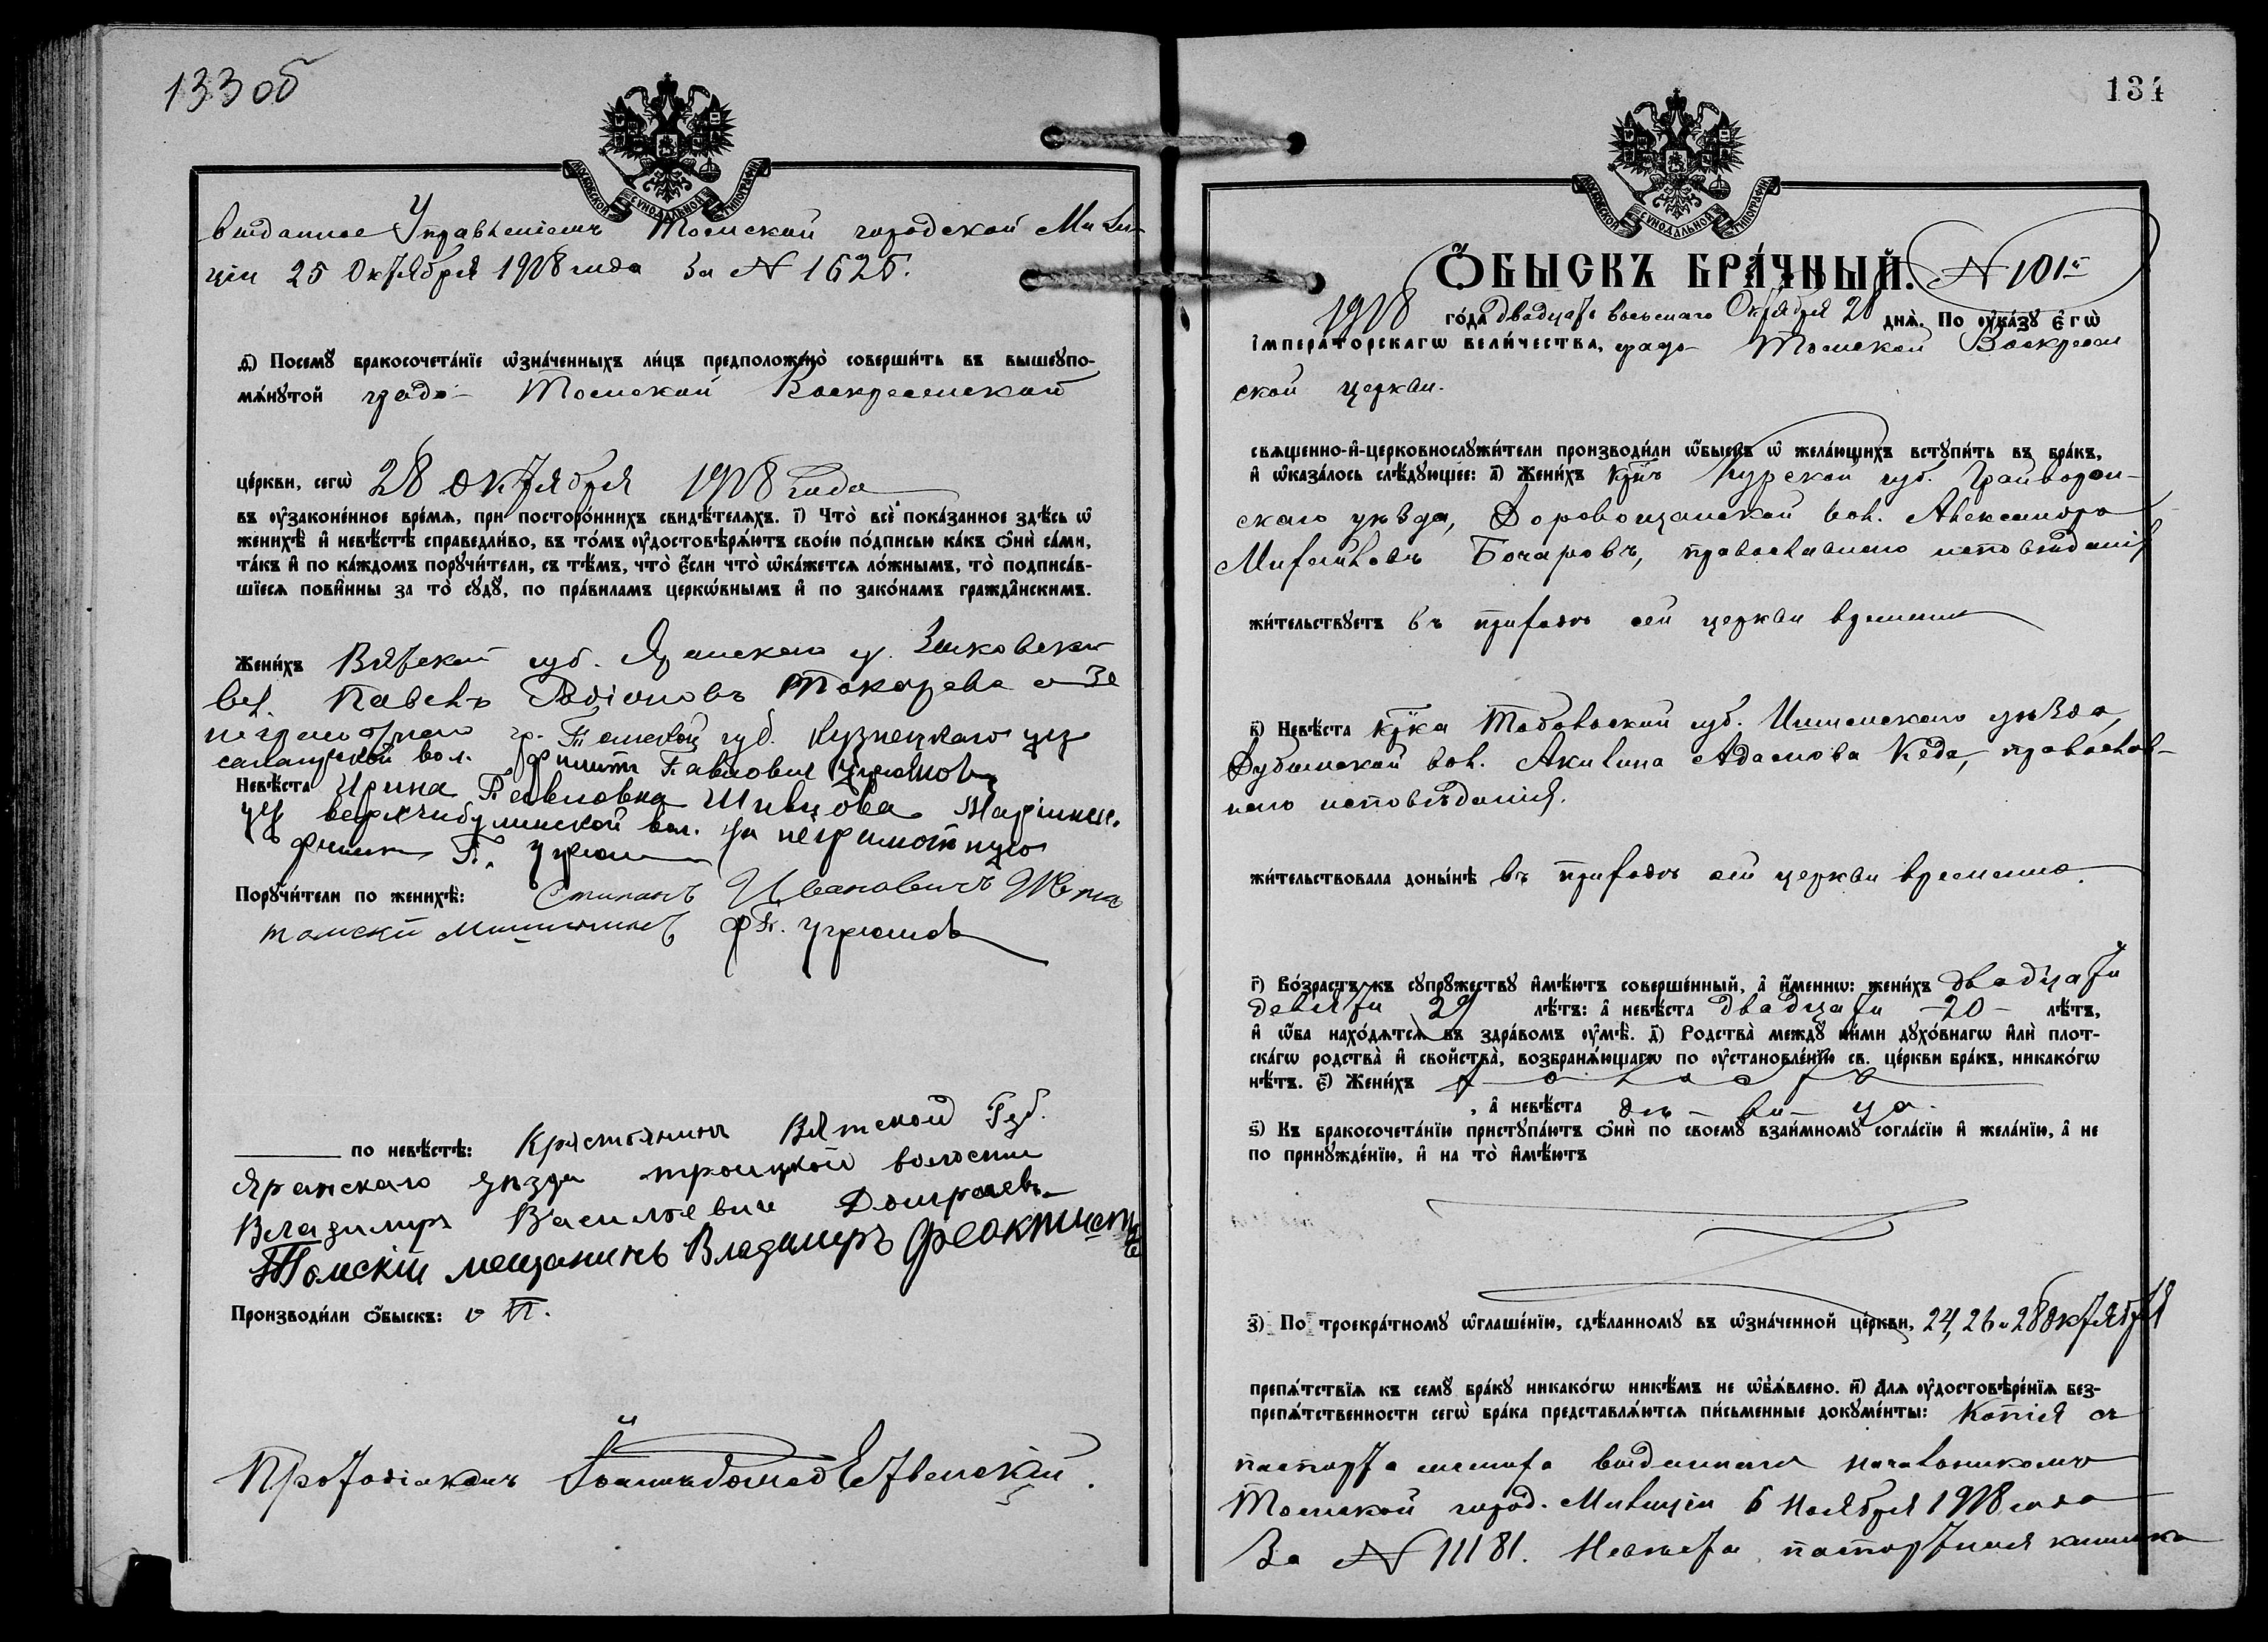 133 об
МОСКОВСКОЙ СѴНОДАЛЬНОЙ ТИПОГРАФІИ
выданное Управленіемъ Томской городской Мили-
ціи 25 Октября 1918 года за № 1625.
д҃) Посемꙋ бракосочета́нїе ѡ҆зна́ченныхъ ли́цъ предположено̀ соверши́ть въ вышеꙋпо-
мѧ́нꙋтой градо- Томской Воскресенской
це́ркви, сегѡ̀ 28 Октября 1918 года
въ ᲂу҆зако́ненное вре́мѧ, при посторо́ннихъ свидѣ́телѧхъ. і҃) Что̀ всѐ пока́занное здѣ́сь ѡ҆
женихѣ̀ и҆ невѣ́стѣ справедли́во, въ то́мъ ᲂу҆достовѣрѧ́ютъ свое́ю по́дписью ка́къ ѻ҆нѝ са́ми,
та́къ и҆ по ка́ждомъ порꙋчи́тели, съ тѣ́мъ, что̀ є҆́сли что̀ ѡ҆ка́жетсѧ ло́жнымъ, то̀ подписа́в-
шїесѧ пови́нны за то̀ сꙋдꙋ̀, по пра́виламъ церко́внымъ и҆ по зако́намъ гражда́нскимъ.
Жени́хъ Вятской губ. Яранскаго у.
Павелъ Родіоновъ Токарева а за
неграмотнаго гр. Томской губ. Кузнецкаго уез
вол. Филипъ Павловичъ Угрюмовъ
Невѣ́ста Ирина Павловна Маріинск.
уез верхчибулинской вол. за неграмотную
Филип П. Угрюмов
Порꙋчи́тели по женихѣ̀: Степанъ Ивановичъ
томски мещанинъ Ф П. Угрюмов
по невѣ́стѣ: Крестьянинъ Вятской Губ.
Яранскаго уезда троицкой волости
Владимиръ Васильевич
Томскій мещанинъ Владимиръ Феоктистовъ
Производи́ли ѻ҆́быскъ:
Протодіаконъ
134
МОСКОВСКОЙ СѴНОДАЛЬНОЙ ТИПОГРАФІИ
Ѻ҆́БЫСКЪ БРА́ЧНЫЙ. № 101й
1918 го́да двадцать восьмаго Октября 28 днѧ̀. По ᲂу҆ка́зꙋ є҆гѡ̀
і҆мпера́торскагѡ вели́чества, градо- Томской Воскресен
ской церкви.
свѧщенно-и҆-церковнослꙋжи́тели производи́ли ѻ҆́быскъ ѡ҆ жела́ющихъ встꙋпи́ть въ бра́къ,
и҆ ѡ҆каза́лось слѣ́дꙋющее: а҃) Жени́хъ кр҃нъ Курской губ. Грайворон-
скаго уѣзда, Дорогощанской вол. Александръ
Михайловъ Бочаровъ, православнаго исповѣданія
жи́тельствꙋетъ въ приходѣ сей церкви временно
в҃) Невѣ́ста кр҃ка Тобольской губ. Ишимскаго уѣзда,
Дубынской вол. Акилина Адамова Кеда, православ-
наго исповѣданія.
жи́тельствовала доны́нѣ въ приходѣ сей церкви временно.
г҃) Во́зрастъ къ сꙋпрꙋ́жествꙋ и҆мѣ́ютъ совершенный, а҆ и҆́менно: жени́хъ двадцати
девяти 29 лѣ́тъ: а҆ невѣ́ста двадцати -20- лѣ́тъ,
и҆ ѻ҆́ба нахо́дѧтсѧ въ здра́вомъ ᲂу҆мѣ̀. д҃) Родства̀ междꙋ̀ ни́ми дꙋхо́внагѡ и҆лѝ плот-
ска́гѡ родства̀ и҆ свойства̀, возбранѧ́ющагѡ по ᲂу҆становле́нїю св. це́ркви бра́къ, никако́гѡ
нѣ́тъ. є҃) Жени́хъ холостъ
, а҆ невѣ́ста дѣ-ви-ца.
ѕ҃) Къ бракосочета́нїю пристꙋпа́ютъ ѻ҆нѝ по своемꙋ̀ взаи́мномꙋ согла́сїю и҆ жела́нїю, а҆ не
по принꙋжде́нїю, и҆ на то̀ и҆мѣ́ютъ
з҃) По троекра́тномꙋ ѡ҆глаше́нїю, сдѣ́ланномꙋ въ ѡ҆зна́ченной це́ркви, 24, 26 и 28 октября
препѧ́тствїѧ къ семꙋ̀ бра́кꙋ никако́гѡ никѣ́мъ не ѡ҆б̾ѧ́влено. и҃) Для ᲂу҆достовѣре́нїѧ без-
препѧ́тственности сегѡ̀ бра́ка представлѧ́ютсѧ пи́сьменные докꙋме́нты: Копія съ
паспорта жениха выданнаго начальникомъ
Томской город. Милиціи 6 Ноября 1918 года
За № 11181. Невѣста паспортная книжка